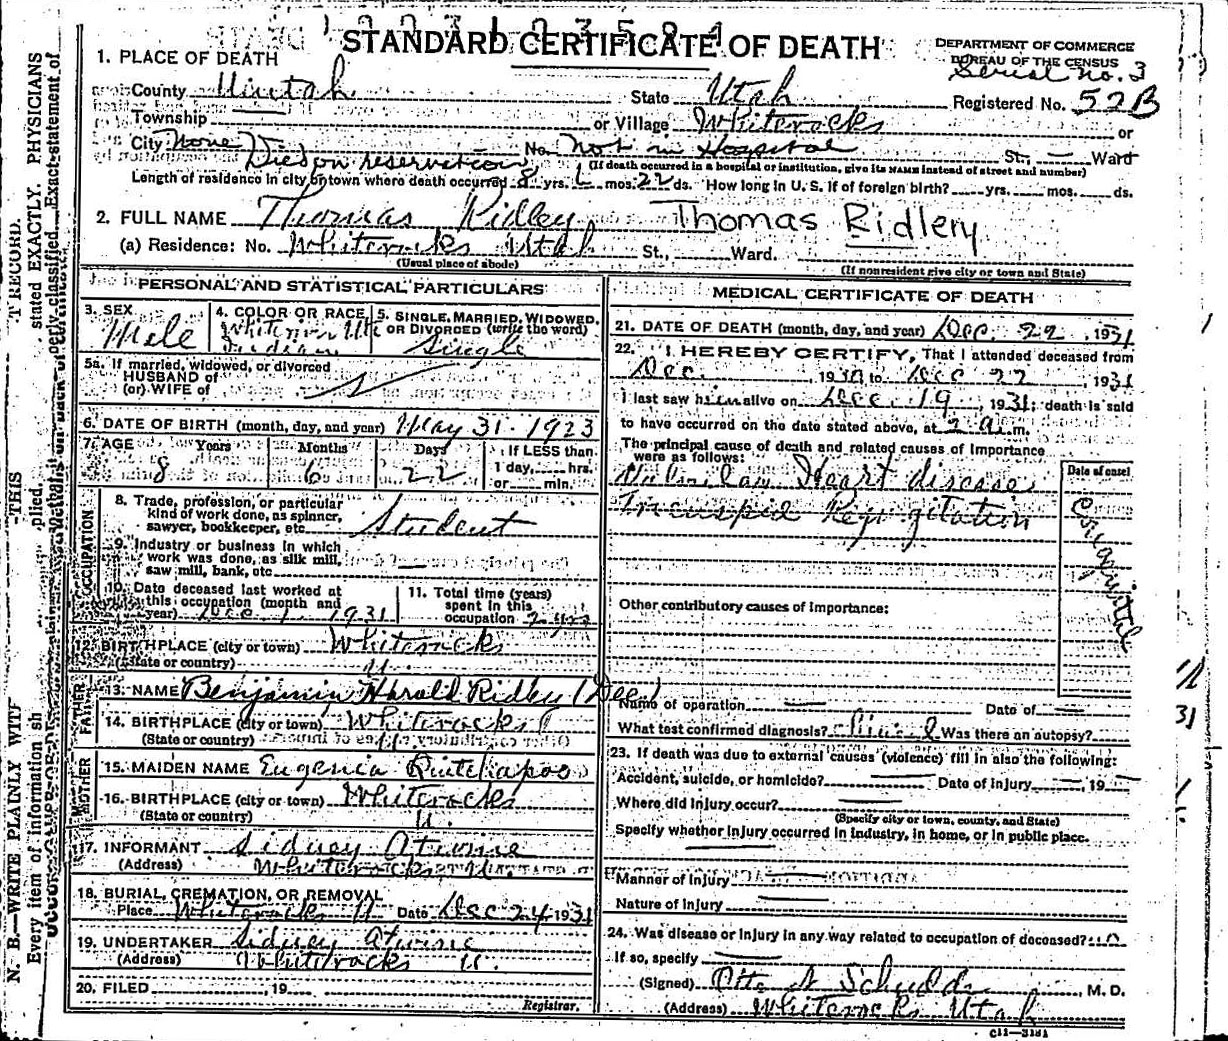 STANDARD CERTIFICATE OF DEATH
DEPARTMENT OF COMMERCE
BUREAU OF THE CENSUS
Serial No. 3
1. PLACE OF DEATH
County Uintah State Utah Registered No. 52B
Township or Village Whiterocks or
City None No. Not in Hospital St., — Ward
Died on reservation (If death occurred in a hospital or institution, give its NAME instead of street and number)
Length of residence in city or town where death occurred 8 yrs. mos. 22 ds. How long in U. S. if of foreign birth? yrs. mos. ds.
2. FULL NAME Thomas Ridley Thomas Ridlery
(a) Residence: No. Whiterocks Utah St., Ward.
(Usual place of abode) (If nonresident give city or town and State)
PERSONAL AND STATISTICAL PARTICULARS
3. SEX Mele
4. COLOR OR RACE Indian
5. SINGLE, MARRIED, WIDOWED, OR DIVORCED (write the word) Single
5a. If married, widowed, or divorced
HUSBAND of
(or) WIFE of
6. DATE OF BIRTH (month, day, and year) May 31 - 1923
7. AGE Years Months Days If LESS than
8 6 22 1 day, hrs.
or min.
OCCUPATION
8. Trade, profession, or particular
kind of work done, as spinner,
sawyer, bookkeeper, etc. Student
9. Industry or business in which
work was done, as silk mill,
saw mill, bank, etc. —
10. Date deceased last worked at
this occupation (month and
year) Dec 1931
11. Total time (years)
spent in this
occupation 2 yrs
12. BIRTHPLACE (city or town) Whiterocks
(State or country) U.
FATHER
13. NAME Benjamin Harold Ridley (Dec)
14. BIRTHPLACE (city or town) Whiterocks
(State or country) U
MOTHER
15. MAIDEN NAME Eugenia
16. BIRTHPLACE (city or town) Whiterocks
(State or country) U.
17. INFORMANT Sidney Atwine
(Address) Whiterocks U.
18. BURIAL, CREMATION, OR REMOVAL
Place Whiterocks U Date Dec 24 1931
19. UNDERTAKER Sidney Atwine
(Address) Whiterocks U.
20. FILED , 19
Registrar.
MEDICAL CERTIFICATE OF DEATH
21. DATE OF DEATH (month, day, and year) Dec. 22, 1931
22. I HEREBY CERTIFY, That I attended deceased from
Dec. , 193 to Dec 22, 1931
I last saw him alive on Dec. 19, 1931; death is said
to have occurred on the date stated above, at 2 a. m.
The principal cause of death and related causes of importance
were as follows:
Date of onset
Heart disease
Tricuspid Regurgitation
Congenital
Other contributory causes of importance:
Name of operation — Date of —
What test confirmed diagnosis? Clinical Was there an autopsy?
23. If death was due to external causes (violence) fill in also the following:
Accident, suicide, or homicide? — Date of injury —, 19 —
Where did injury occur? —
(Specify city or town, county, and State)
Specify whether injury occurred in industry, in home, or in public place.
—
Manner of injury —
Nature of injury —
24. Was disease or injury in any way related to occupation of deceased? no
If so, specify —
(Signed) Otto , M. D.
(Address) Whiterocks Utah
c11—3181
N. B.—WRITE PLAINLY WITH
THIS
T RECORD.
Every item of information sh
plied.
stated EXACTLY. PHYSICIANS
erly classified. Exact statement of
31